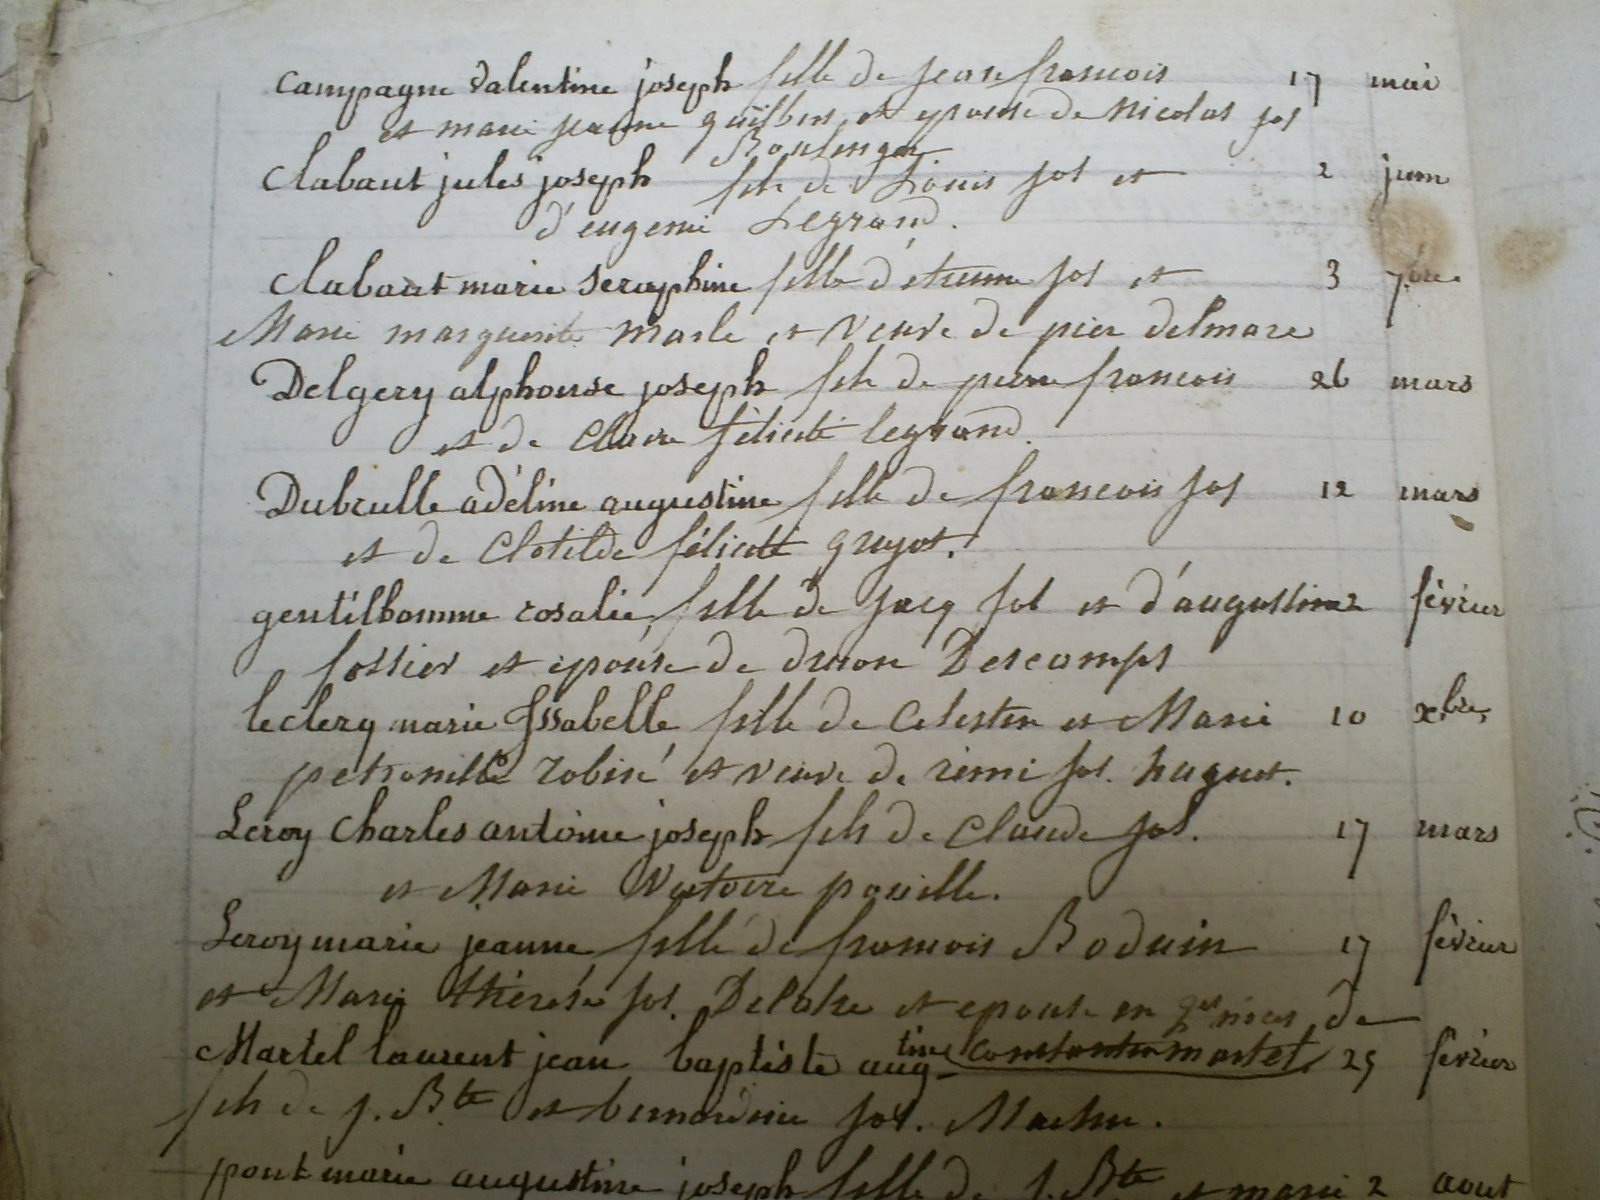 Campagne Valentine joseph fille de jean francois 17 mai
et marie jeanne guilbert et epouse de Nicolas jos
Boulenger
Clabaut jules joseph fils de Louis jos et 2 juin
d'eugenie Legrand.
Clabaut marie Seraphine fille d'etienne jos et 3 7bre
Marie marguerite Marle et Veuve de pier delmare
Delgery alphonse joseph fils de pierre francois 26 mars
et de Claire félicité legrand.
Dubrulle adéline augustine fille de francois jos 12 mars
et de Clotilde félicité guyot.
gentilhomme rosalie, fille de jacq jos et d'augustine 2 février
fossier et épouse de druon Descamps
leclerq marie Issabelle fille de Celestin et Marie 10 xbre,
petronille robisé et veuve de rémi jos. huguet.
Leroy Charles antoine joseph fils de Claude jos. 17 mars
et Marie Victoire pouille.
Leroy marie jeanne fille de francois Boduin 17 février
et Marie thérèse jos. et epouse en de
Martel laurent jean baptiste augtine constantin martel 25 février
fils de j. Bte et bernardine jos.
pont marie augustine joseph fille de j. Bte et marie 2 aout